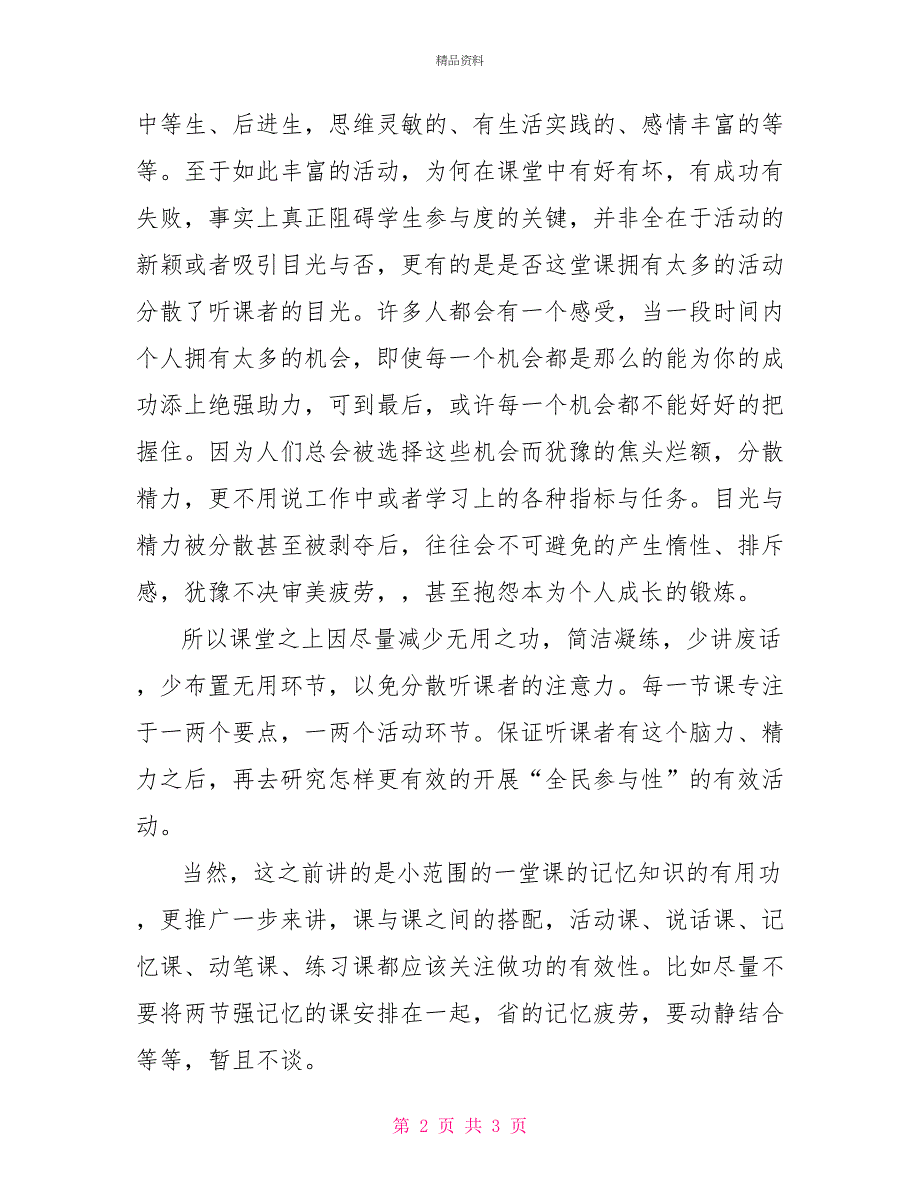 精品资料
中等生、后进生，思维灵敏的、有生活实践的、感情丰富的等
等。至于如此丰富的活动，为何在课堂中有好有坏，有成功有
失败，事实上真正阻碍学生参与度的关键，并非全在于活动的
新颖或者吸引目光与否，更有的是是否这堂课拥有太多的活动
分散了听课者的目光。许多人都会有一个感受，当一段时间内
个人拥有太多的机会，即使每一个机会都是那么的能为你的成
功添上绝强助力，可到最后，或许每一个机会都不能好好的把
握住。因为人们总会被选择这些机会而犹豫的焦头烂额，分散
精力，更不用说工作中或者学习上的各种指标与任务。目光与
精力被分散甚至被剥夺后，往往会不可避免的产生惰性、排斥
感，犹豫不决审美疲劳，，甚至抱怨本为个人成长的锻炼。
所以课堂之上因尽量减少无用之功，简洁凝练，少讲废话
，少布置无用环节，以免分散听课者的注意力。每一节课专注
于一两个要点，一两个活动环节。保证听课者有这个脑力、精
力之后，再去研究怎样更有效的开展“全民参与性”的有效活
动。
当然，这之前讲的是小范围的一堂课的记忆知识的有用功
，更推广一步来讲，课与课之间的搭配，活动课、说话课、记
忆课、动笔课、练习课都应该关注做功的有效性。比如尽量不
要将两节强记忆的课安排在一起，省的记忆疲劳，要动静结合
等等，暂且不谈。
第 2 页 共 3 页